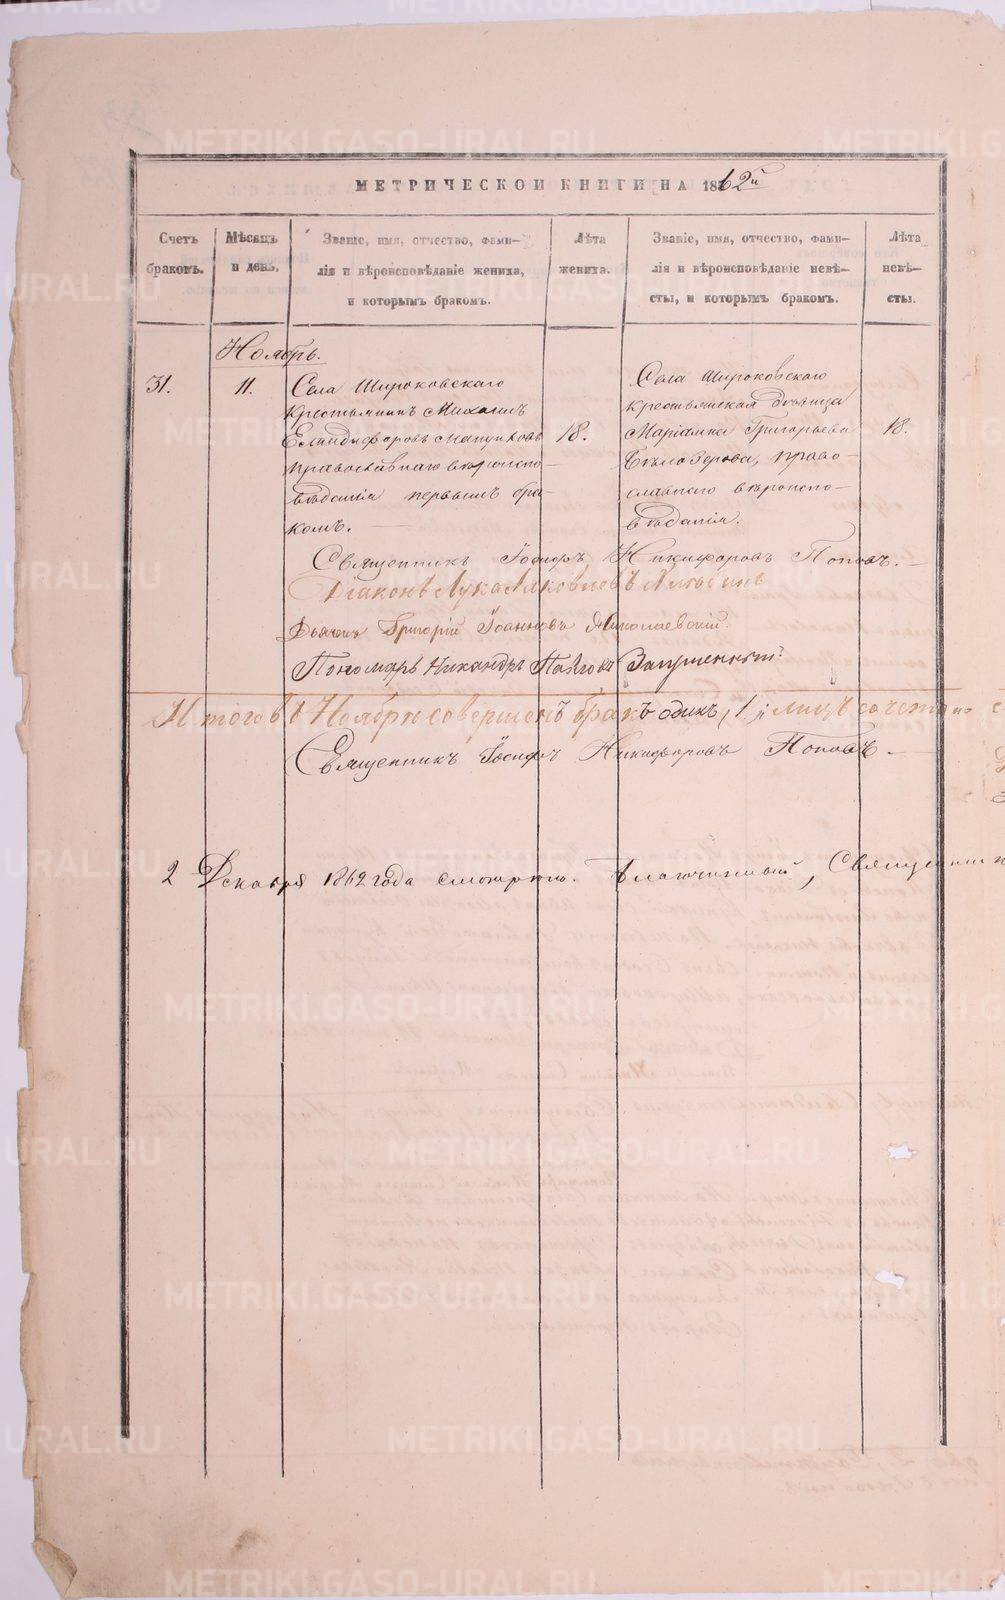 МЕТРИЧЕСКОЙ КНИГИ НА 1862й
Счетъ браковъ.
Мѣсяцъ и день.
Званіе, имя, отчество, фами-
лія и вѣроисповѣданіе жениха,
и которымъ бракомъ.
Лѣта жениха.
Званіе, имя, отчество, фами-
лія и вѣроисповѣданіе невѣ-
сты, и которымъ бракомъ.
Лѣта невѣ-
сты.
Ноябрь.
31.
11.
Села Широковскаго
крестьянинъ Михаилъ
Елпидифоровъ
православнаго вѣроиспо-
вѣданія первымъ бра-
комъ.
18.
Села Широковскаго
крестьянская дѣвица
Маріамна Григорьева
Бѣлозерова, право-
славнаго вѣроиспо-
вѣданія.
18.
Священникъ Іосифъ Никифоровъ Поповъ.
Діаконъ Лука Яковлевъ
Дьячекъ Григорій Іоанновъ Николаевскій.
Пономарь Никандръ
Итого въ Ноябрѣ совершенъ бракъ одинъ, 1, лицъ сочетано
Священникъ Іосифъ Никифоровъ Поповъ
2 Декабря 1862 года смотрѣно. Благочинный, Священник
METRIKI.GASO-URAL.RU